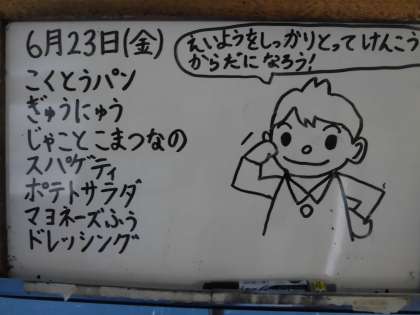 6月23日(金)
こくとうパン
ぎゅうにゅう
じゃことこまつなの
スパゲティ
ポテトサラダ
マヨネーズふう
ドレッシング
えいようをしっかりとってけんこう
からだになろう!